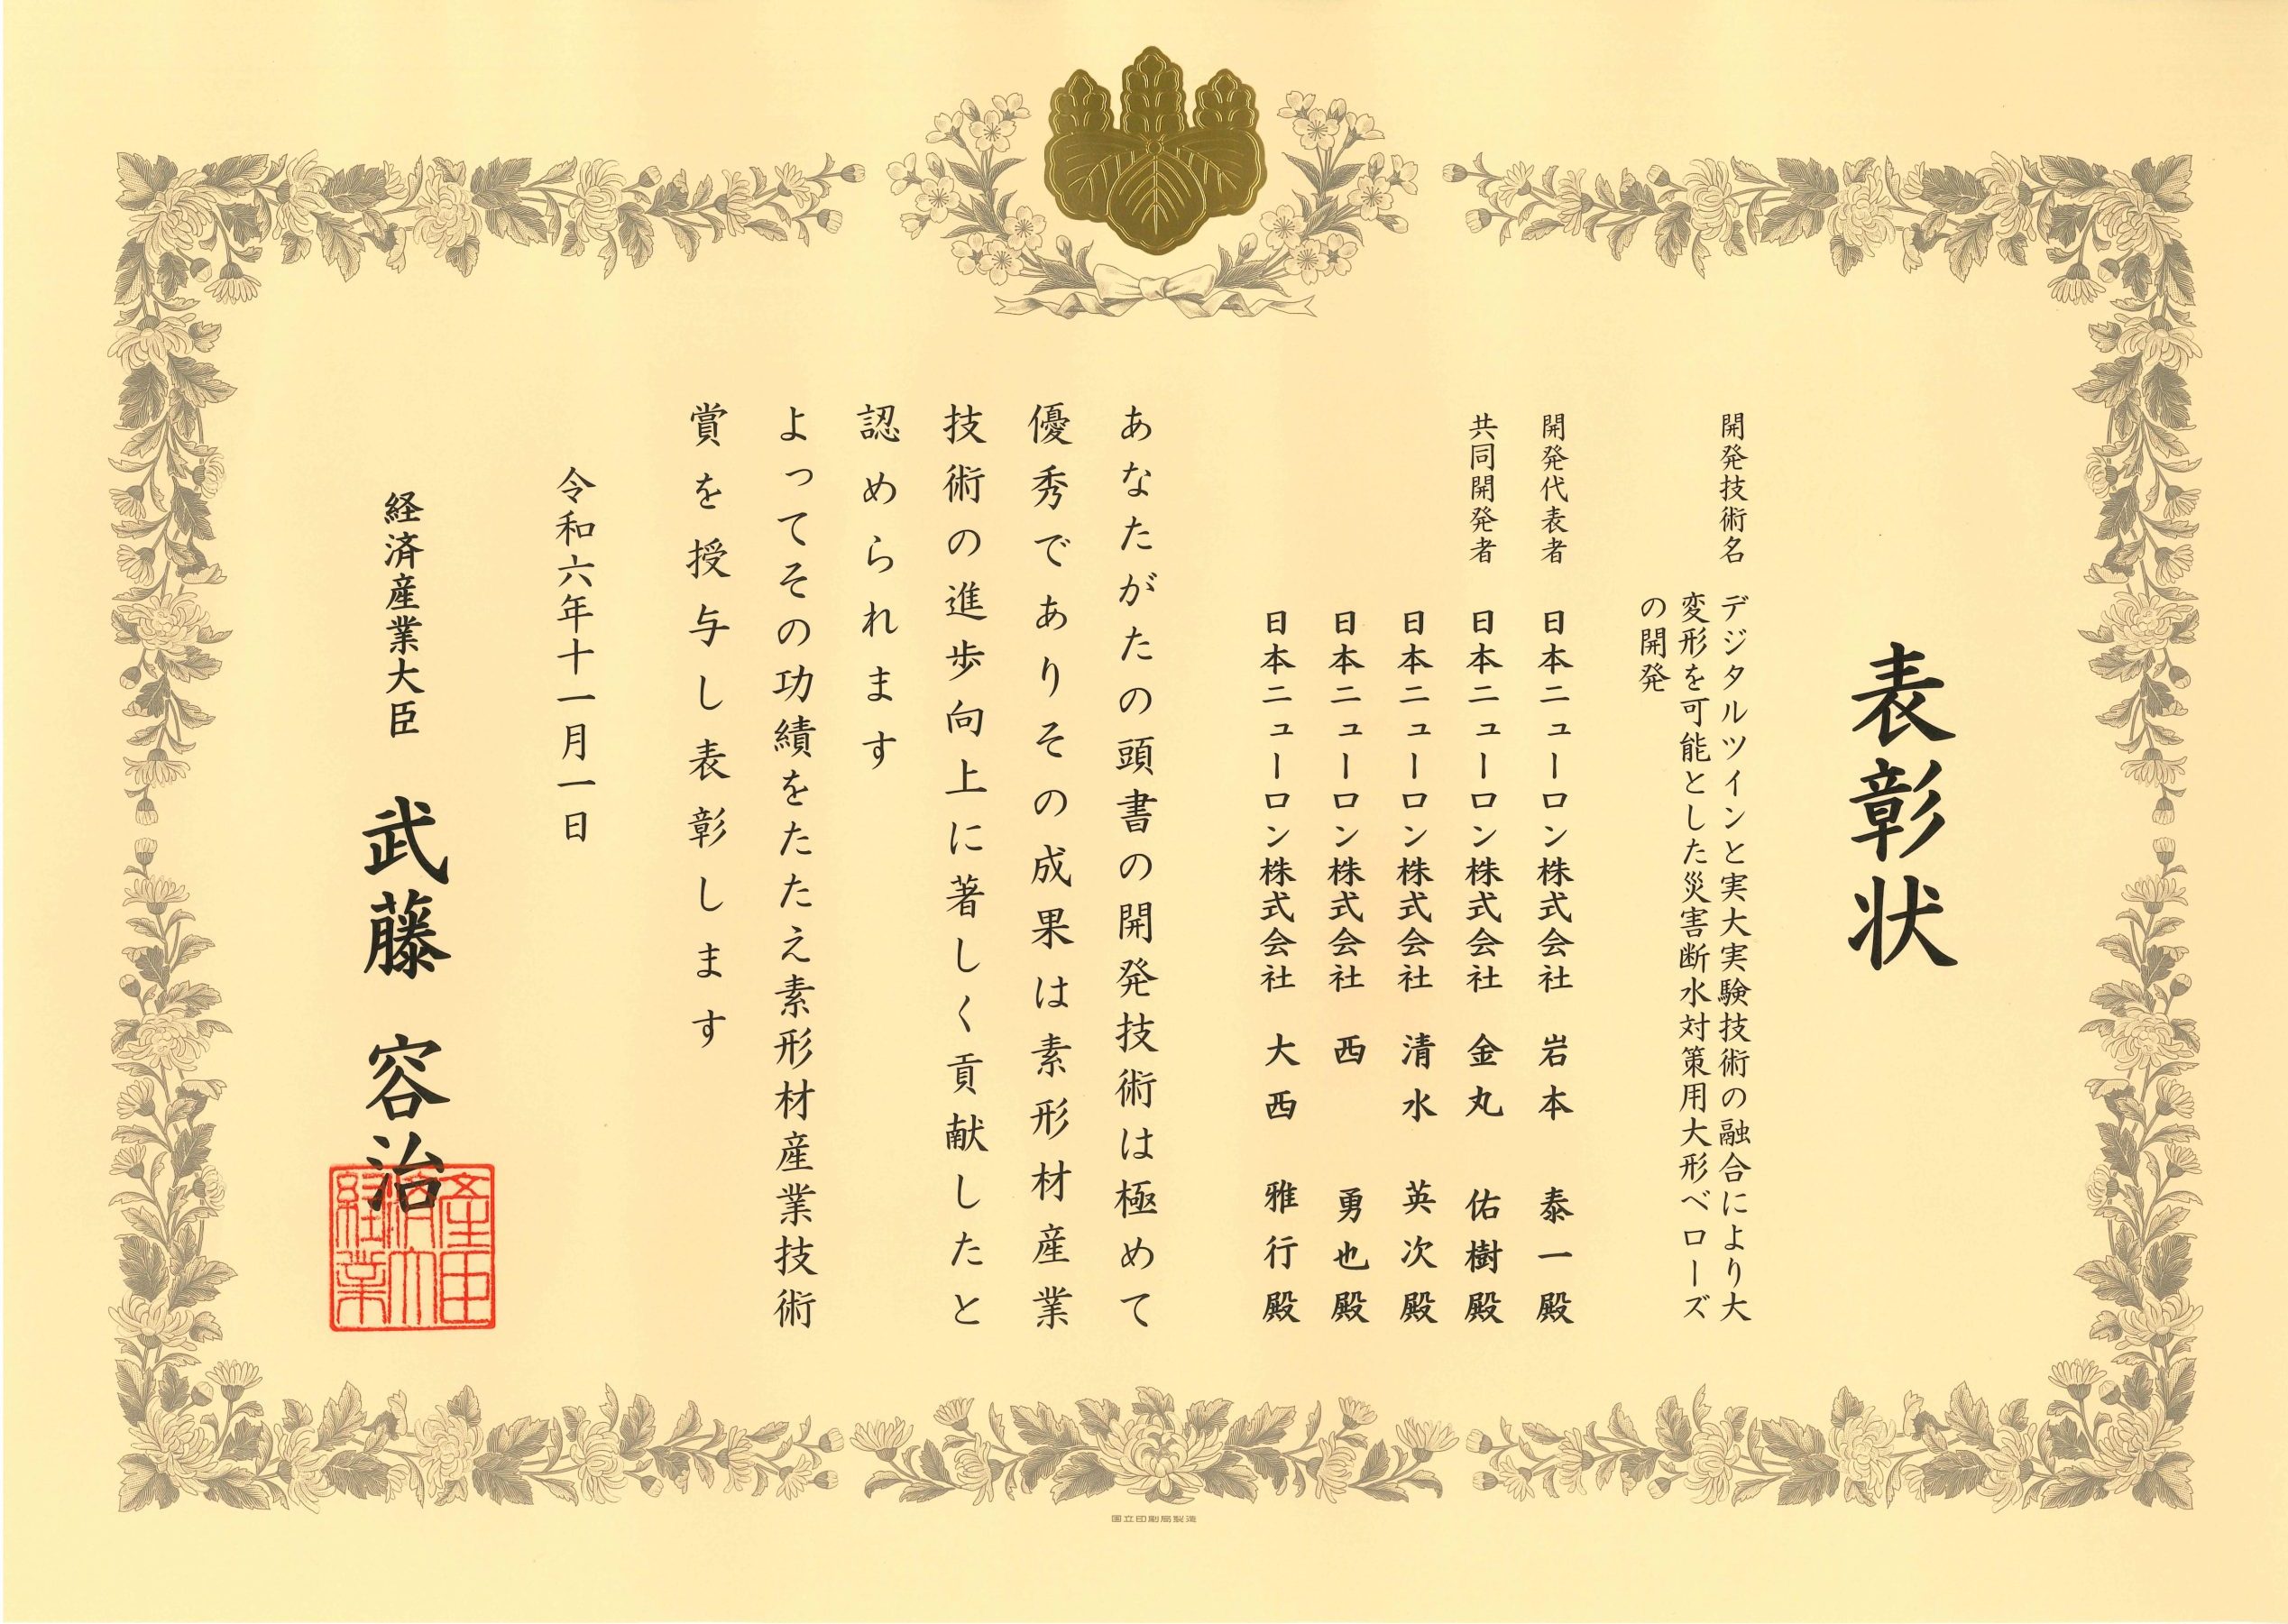 表彰状
開発技術名 デジタルツインと実大実験技術の融合により大
変形を可能とした災害断水対策用大形ベローズ
の開発
開発代表者 日本ニューロン株式会社 岩本 泰一殿
共同開発者 日本ニューロン株式会社 金丸 佑樹殿
日本ニューロン株式会社 清水 英次殿
日本ニューロン株式会社 西 勇也殿
日本ニューロン株式会社 大西 雅行殿
あなたがたの頭書の開発技術は極めて
優秀でありその成果は素形材産業
技術の進歩向上に著しく貢献したと
認められます
よってその功績をたたえ素形材産業技術
賞を授与し表彰します
令和六年十一月一日
経済産業大臣 武藤 容治
国立印刷局製造